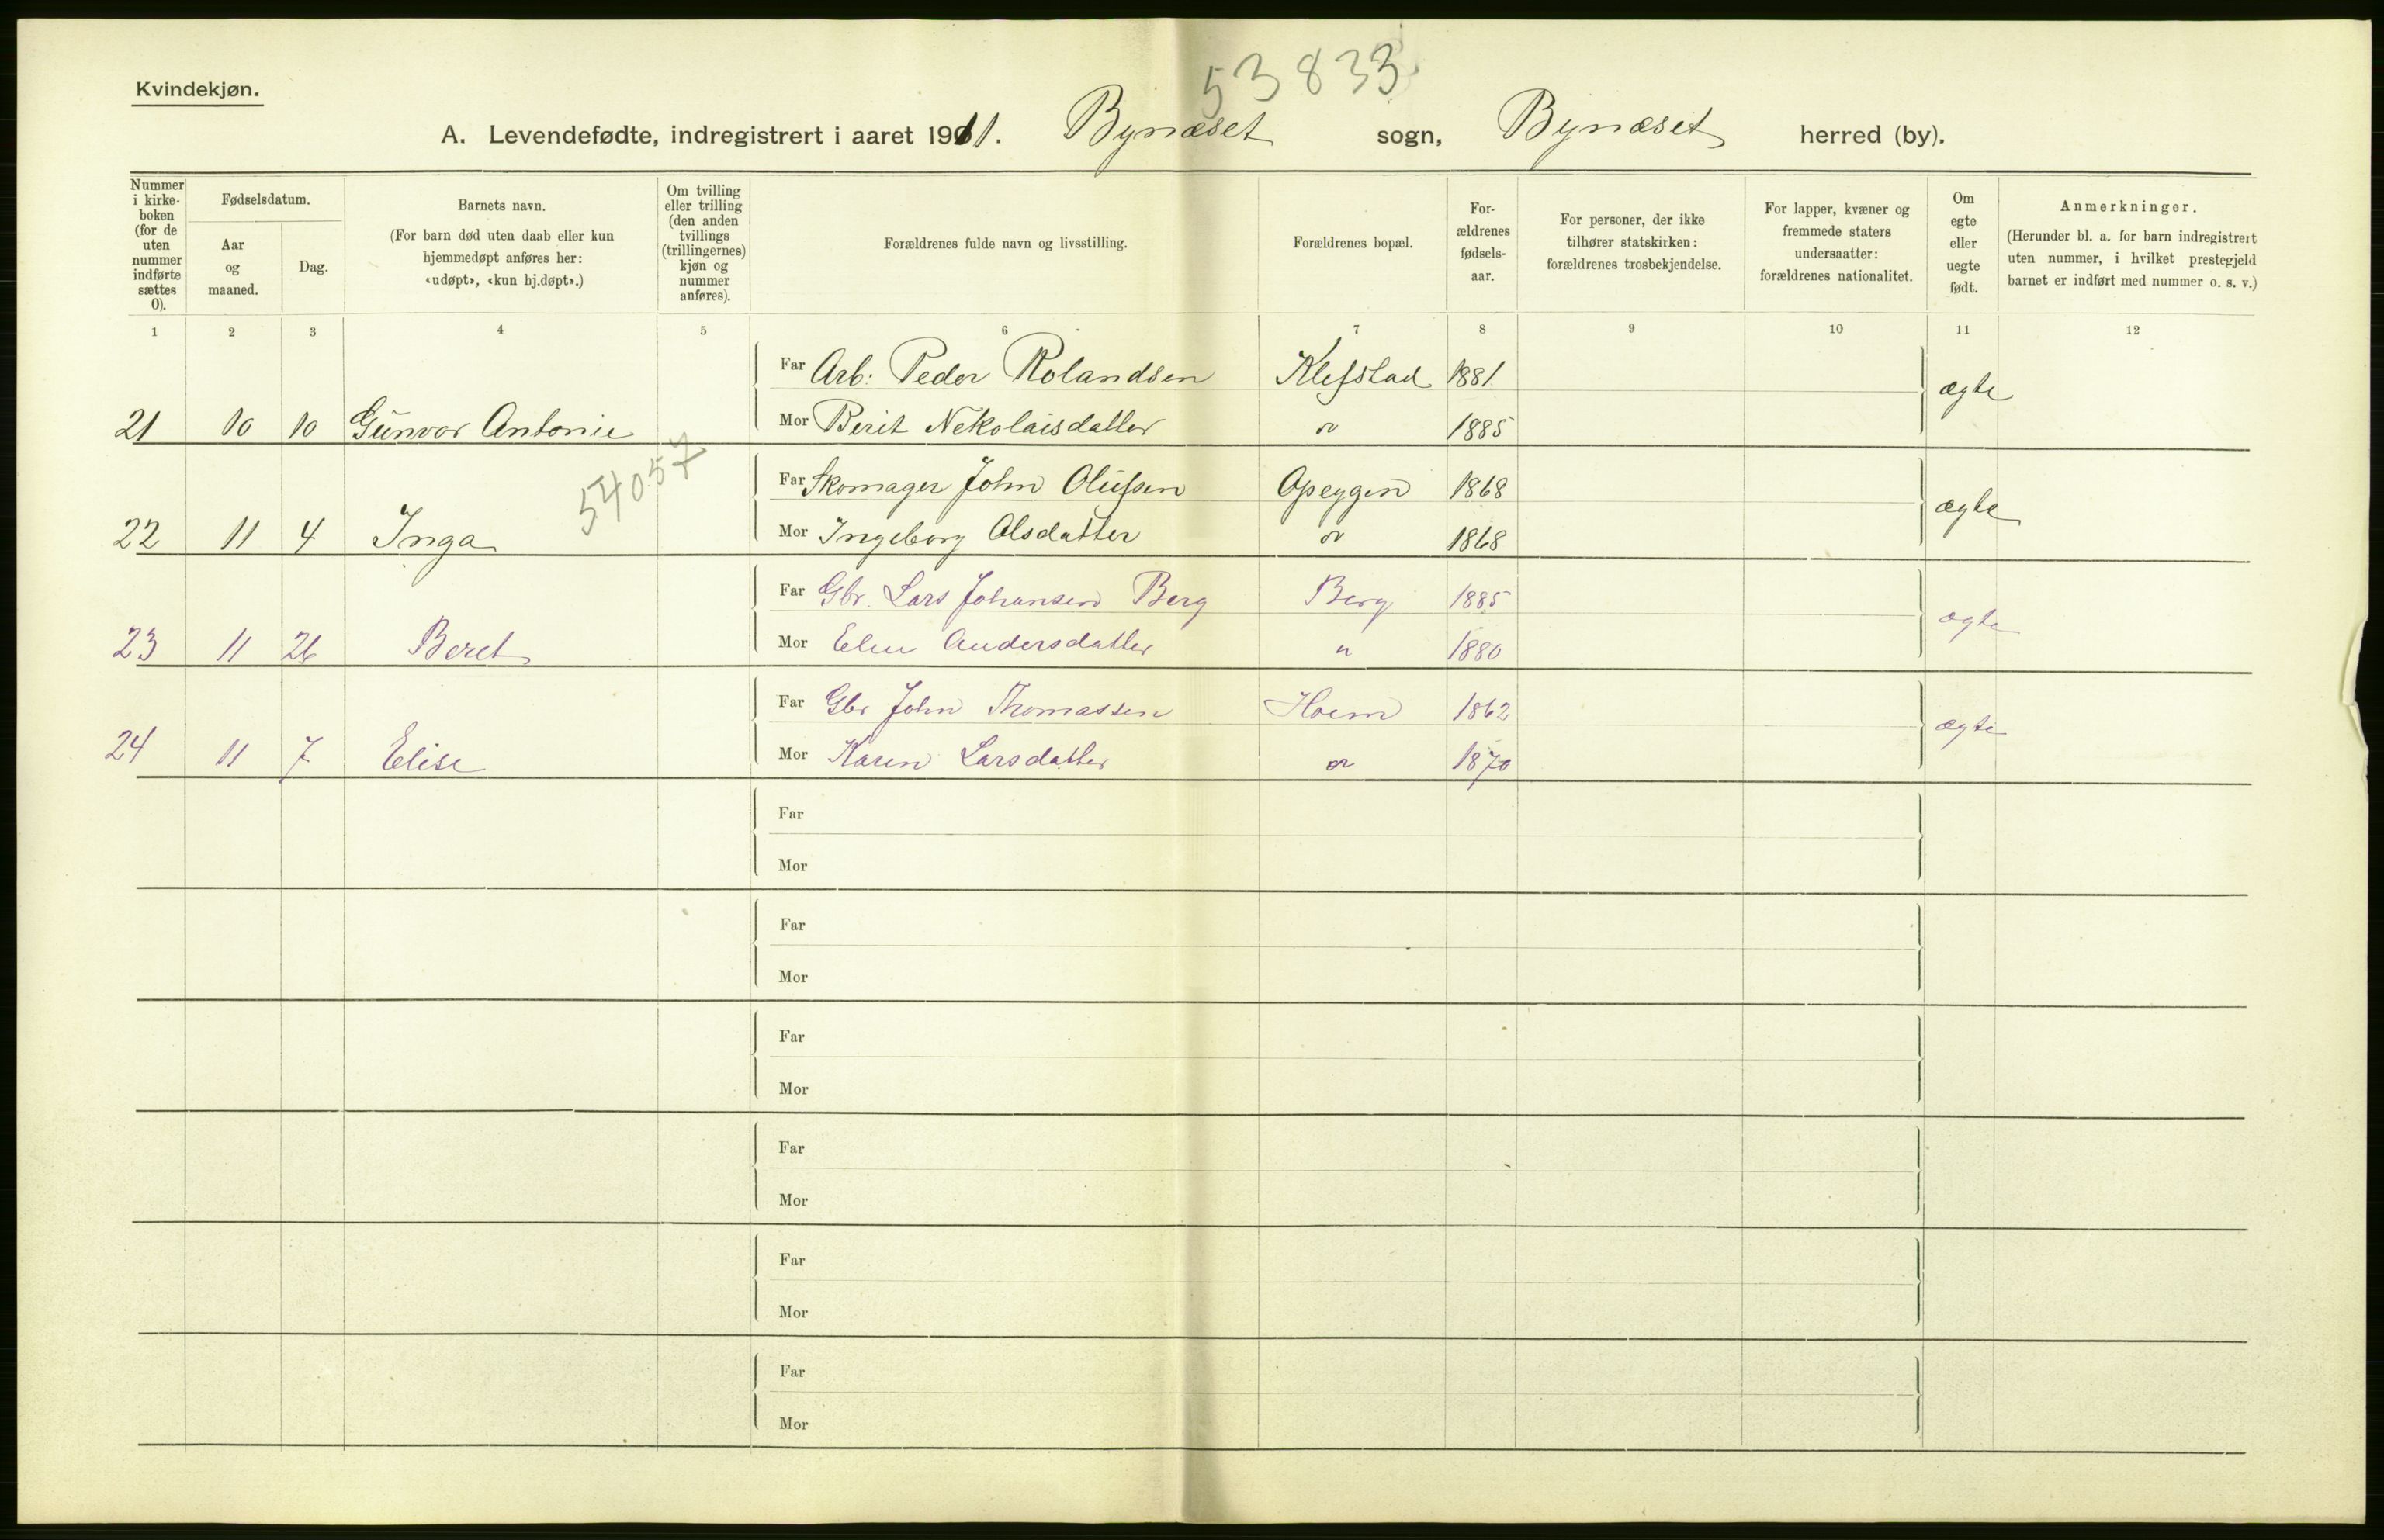 53833
Kvindekjøn.
A. Levendefødte, indregistrert i aaret 1911. Bynæset sogn, Bynæset herred (by).
Nummer i kirke-boken (for de uten nummer indførte sættes 0).
Fødselsdatum.
Aar og maaned.
Dag.
Barnets navn.
(For barn død uten daab eller kun hjemmedøpt anføres her: «udøpt», «kun hj.døpt».)
Om tvilling eller trilling (den anden tvillings (trillingernes) kjøn og nummer anføres).
Forældrenes fulde navn og livsstilling.
Forældrenes bopæl.
For-ældrenes fødsels-aar.
For personer, der ikke tilhører statskirken: forældrenes trosbekjendelse.
For lapper, kvæner og fremmede staters undersaatter: forældrenes nationalitet.
Om egte eller uegte født.
Anmerkninger.
(Herunder bl. a. for barn indregistrert uten nummer, i hvilket prestegjeld barnet er indført med nummer o. s. v.)
1 2 3 4 5 6 7 8 9 10 11 12
Far Arb: Peder Rolandsen Klefstad 1881 ægte
21 10 10 Gunvor Antonie Mor Berit Nekolaisdatter " 1885
54057
Far Skomager John Olufsen 1868 ægte
22 11 4 Inga Mor Ingeborg Olsdatter " 1868
Far Gbr. Lars Johansen Berg Berg 1885 ægte
23 11 26 Beret Mor Elen Andersdatter " 1880
Far Gbr John Thomassen Hoem 1862 ægte
24 11 7 Elise Mor Karen Larsdatter " 1870
Far
Mor
Far
Mor
Far
Mor
Far
Mor
Far
Mor
Far
Mor